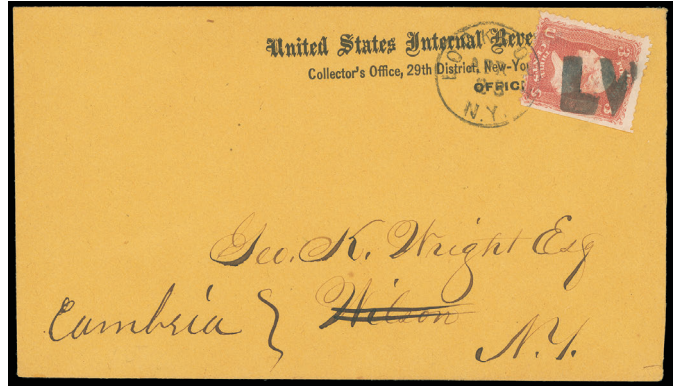 United States Internal Reve
Collector's Office, 29th District, New-Yo
OFFIC
N.Y.
LV
Geo. K. Wright Esq
Cambria } Wilson
N.Y.